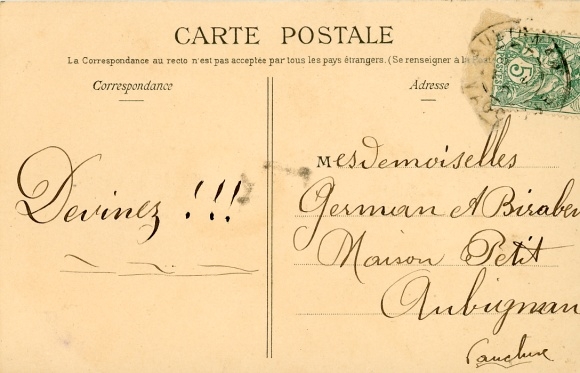 CARTE POSTALE
La Correspondance au recto n'est pas acceptée par tous les pays étrangers. (Se renseigner à la Poste)
Correspondance
Adresse
Devinez !!!
Mesdemoiselles
German et Biraben
Maison Petit
Aubignan
Vaucluse
5c